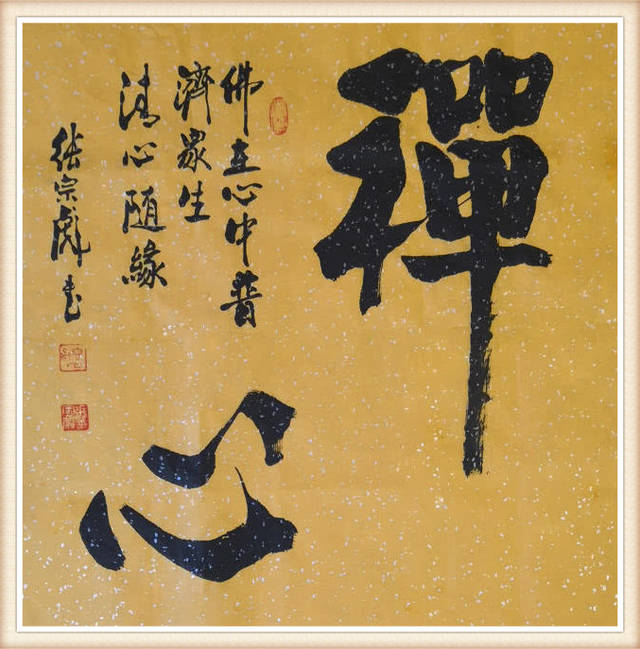 禪
心
佛在心中普
濟眾生
清心隨緣
張宗彪書